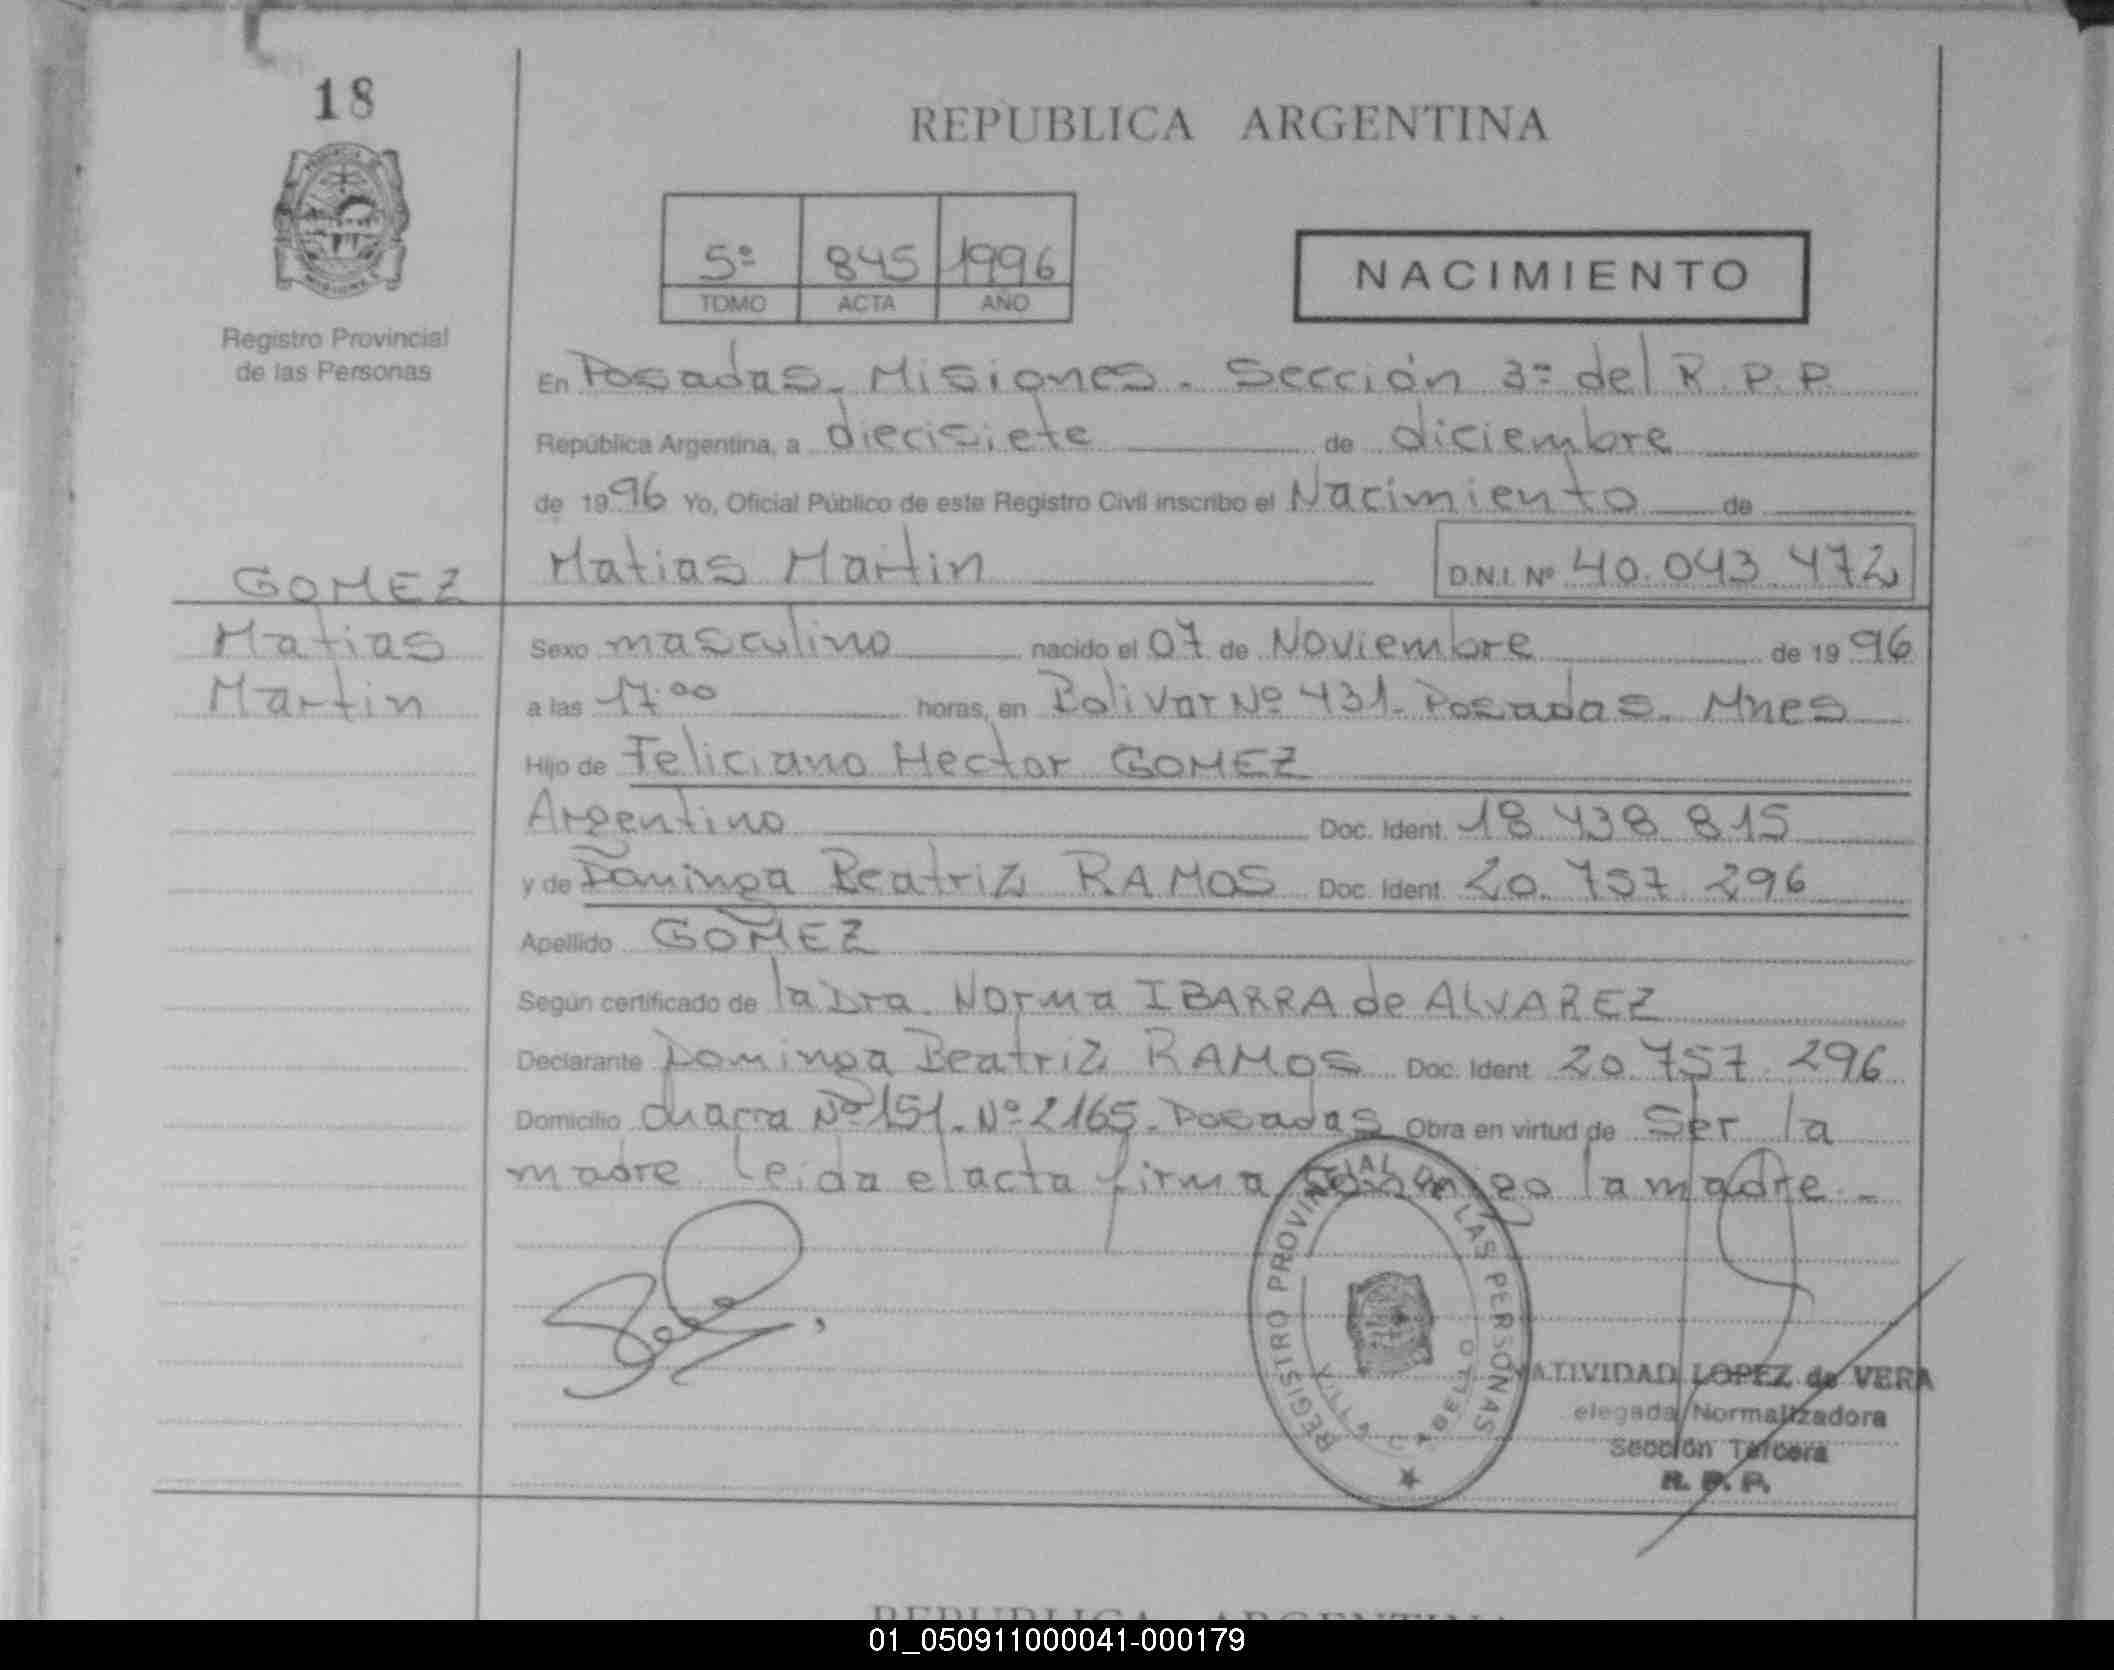 18
REPUBLICA ARGENTINA
5º 845 1996
TOMO ACTA AÑO
NACIMIENTO
Registro Provincial
de las Personas
En Posadas. Misiones. Sección 3º del R.P.P.
República Argentina, a diecisiete de diciembre
de 1996 Yo, Oficial Público de este Registro Civil inscribo el Nacimiento de
Matias Martin D.N.I. Nº 40.043.472
GOMEZ
Matias
Martin
Sexo masculino nacido el 07 de Noviembre de 1996
a las 17:00 horas, en Bolivar Nº 431. Posadas. Mnes
Hijo de Feliciano Hector GOMEZ
Argentino Doc. Ident. 18.438.815
y de Dominga Beatriz RAMOS Doc. Ident. 20.757.296
Apellido GOMEZ
Según certificado de la Dra. Norma IBARRA de ALVAREZ
Declarante Dominga Beatriz RAMOS Doc. Ident. 20.757.296
Domicilio chacra Nº 151. Nº 2165. Posadas Obra en virtud de Ser la
madre. Leida el acta firma conmigo la madre.-
REGISTRO PROVINCIAL DE LAS PERSONAS
VILLA CABELLO
NATIVIDAD LOPEZ de VERA
elegada Normalizadora
Sección Tercera
R. P. P.
REPUBLICA ARGENTINA
01_050911000041-000179